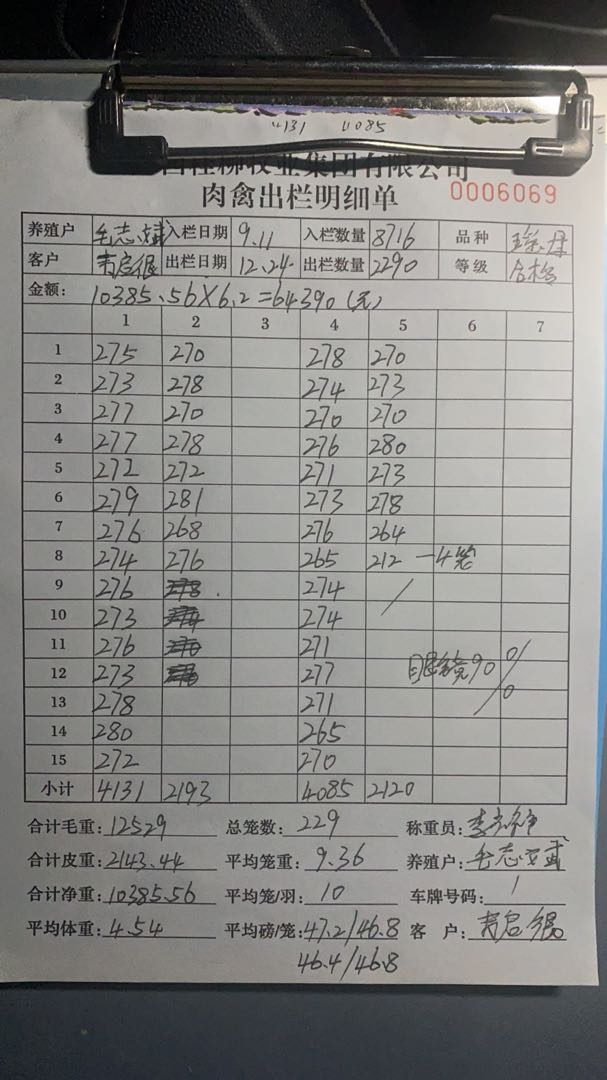 4131 4085
柳牧业集团有限公司
肉禽出栏明细单 0006069
养殖户 毛志斌 入栏日期 9.11 入栏数量 8716 品种
客户 出栏日期 12.24 出栏数量 2290 等级 合格
金额: 10385.56×6.2=64390(元)
1 2 3 4 5 6 7
1 275 270 278 270
2 273 278 274 273
3 277 270 270 270
4 277 278 276 280
5 272 272 271 273
6 279 281 273 278
7 276 268 276 264
8 274 276 265 212 —4笼
9 276 274
10 273 274
11 276 271
12 273 277 眼镜90%
13 278 271
14 280 265
15 272 270
小计 4131 2193 4085 2120
合计毛重: 12529 总笼数: 229 称重员:
合计皮重: 2143.44 平均笼重: 9.36 养殖户: 毛志斌
合计净重: 10385.56 平均笼/羽: 10 车牌号码: /
平均体重: 4.54 平均磅/笼: 47.2/46.8 客 户:
46.4/46.8